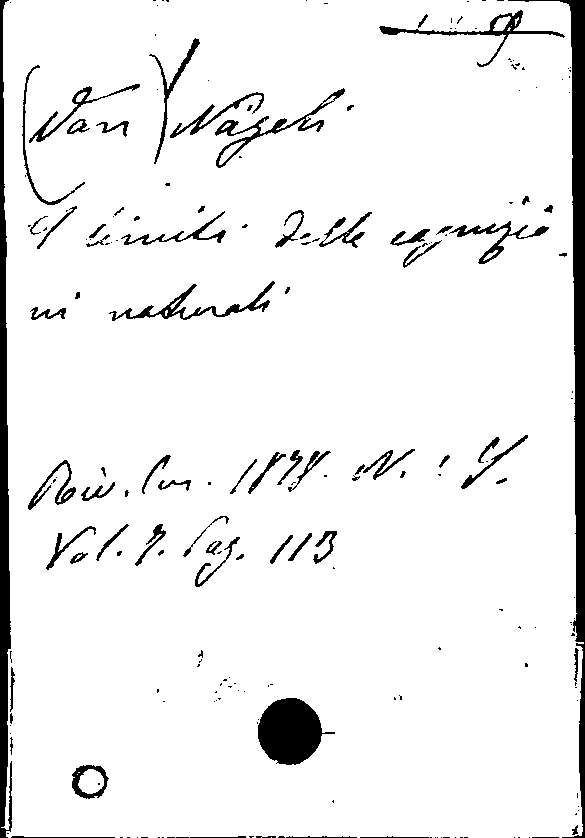 59
(Van) Nägeli
I limiti delle cognizio-
ni naturali
Riv. Eur. 1878. N. S.
Vol. 7. Pag. 113